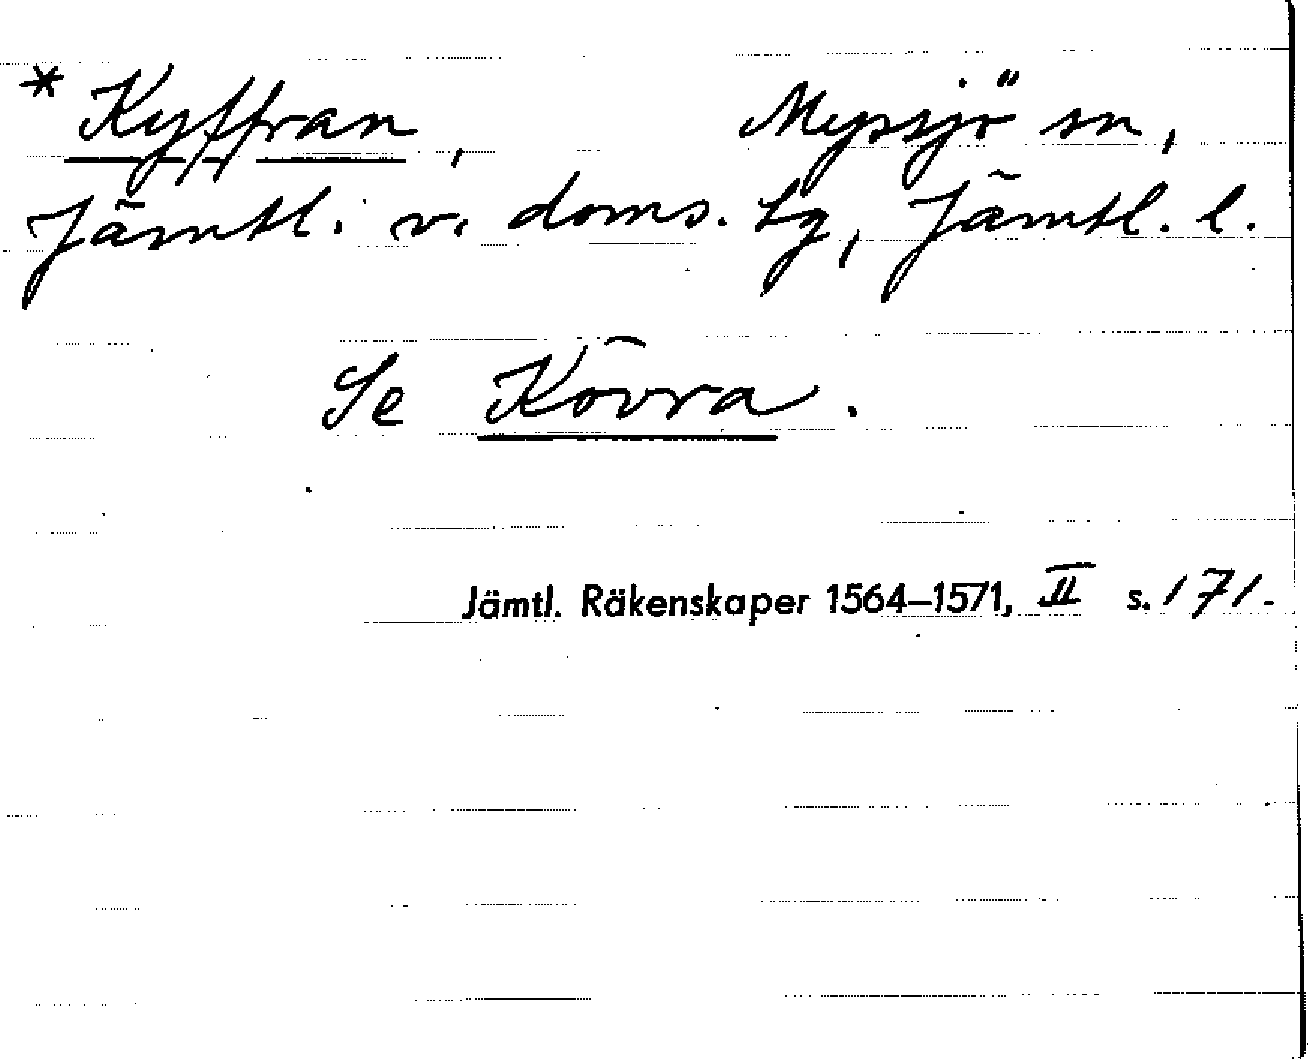 * Kyffran, Myssjö sn,
Jämtl. v. doms. tg, Jämtl. l.
Se Kövra.
Jämtl. Räkenskaper 1564–1571, II s. 171.